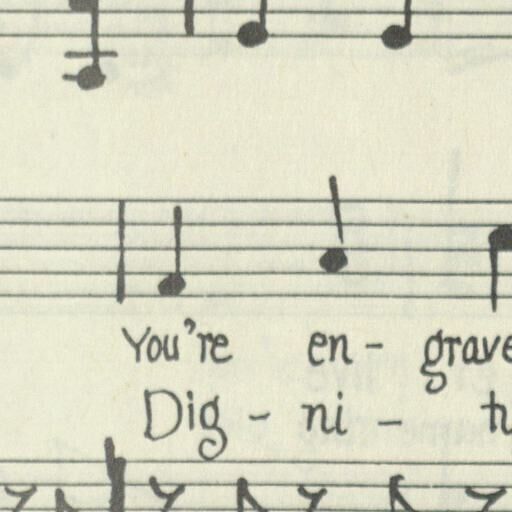 You're en- grave
Dig - ni - tu